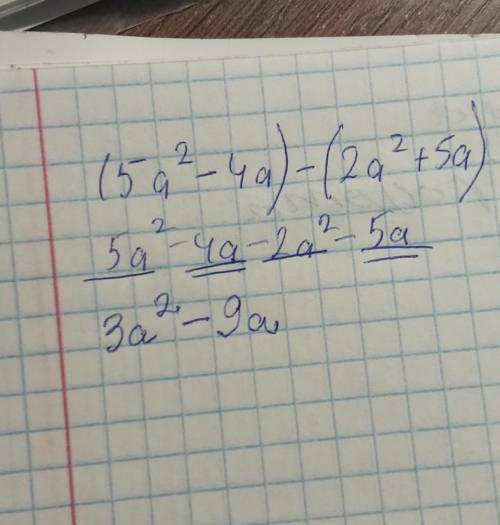 (5a² - 4a) - (2a² + 5a)
5a² - 4a - 2a² - 5a
3a² - 9a